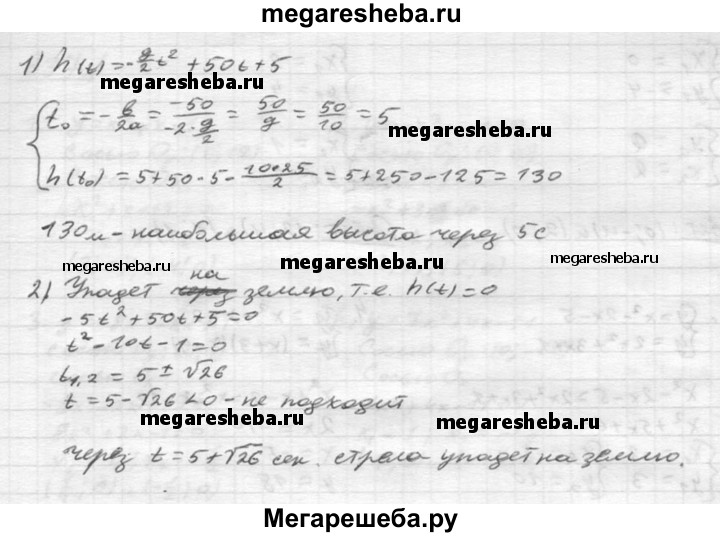 megaresheba.ru
1) h(t) = -g/2 t² + 50t + 5
megaresheba.ru
t₀ = -b/2a = -50/-2·g/2 = 50/g = 50/10 = 5
megaresheba.ru
h(t₀) = 5+50·5- 10·25/2 = 5+250-125=130
130м - наибольшая высота через 5с
megaresheba.ru megaresheba.ru megaresheba.ru
2) Упадет на землю, т.е. h(t)=0
-5t²+50t+5=0
t²-10t-1=0
t₁,₂ = 5 ± √26
t = 5-√26 <0 - не подходит
megaresheba.ru megaresheba.ru
через t = 5+√26 сек. стрела упадет на землю.
Мегарешеба.ру